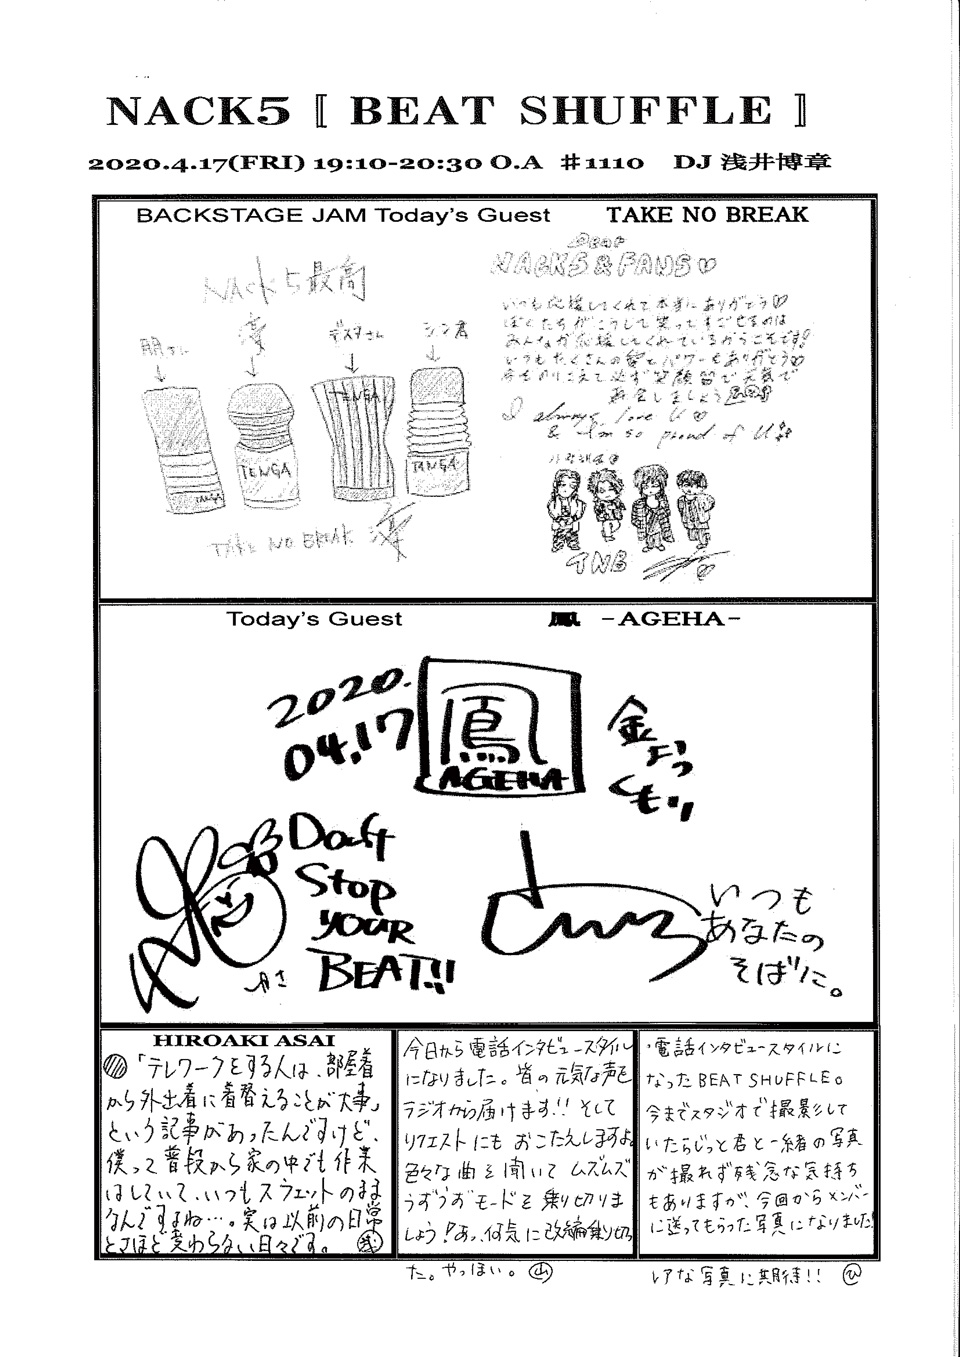 NACK5 〚 BEAT SHUFFLE 〛
2020.4.17(FRI) 19:10-20:30 O.A ♯1110 DJ 浅井博章
BACKSTAGE JAM Today's Guest TAKE NO BREAK
NACK5最高
朋さん
デスタさん
シン君
TENGA
TENGA
TENGA
TENGA
TAKE NO BREAK
Dear
NACK5 & FANS♡
いつも応援してくれて本当にありがとう♡
ぼくたちがこうして笑ってすごせるのは
みんなが応援してくれているからこそです!
いつもたくさんの愛とパワーをありがとう♡
今をのりこえて必ず笑顔で元気で
お会しましょう
I always love U ♡
& I'm so proud of U
TNB
Today's Guest 鳳 -AGEHA-
2020.
04.17
鳳
AGEHA
金よう
くもり
Don't
Stop
YOUR
BEAT!!
いつも
あなたの
そばに。
HIROAKI ASAI
「テレワークをする人は、部屋着
から外出着に着替えることが大事」
という記事があったんですけど、
僕って普段から家の中でも作業
はしていて、いつもスウェットのまま
なんですよね…。実は以前の日常
とさほど変わらない日々です。 浅
今日から電話インタビュースタイル
になりました。皆の元気な声を
ラジオから届けます!! そして
リクエストにもおこたえしますよ。
色々な曲を聞いてムズムズ
うずうずモードを乗り切りま
しょう!あっ、何気に改編乗り切っ
た。やっほい。 山
・電話インタビュースタイルに
なったBEAT SHUFFLE。
今までスタジオで撮影して
いたらじっと君と一緒の写真
が撮れず残念な気持ち
もありますが、今回からメンバー
に送ってもらった写真になりました!
レアな写真に期待!! ひ